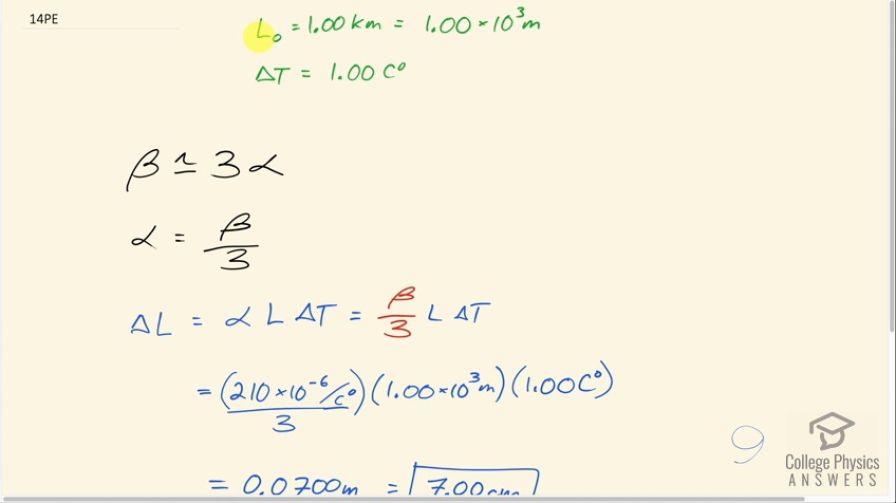 14PE
L₀ = 1.00 km = 1.00 × 10³ m
ΔT = 1.00 C°
β ≃ 3α
α = β/3
ΔL = α L ΔT = β/3 L ΔT
= (210 × 10⁻⁶/C°)/3 (1.00 × 10³ m) (1.00 C°)
= 0.0700 m = 7.00 cm
9
College Physics
ANSWERS